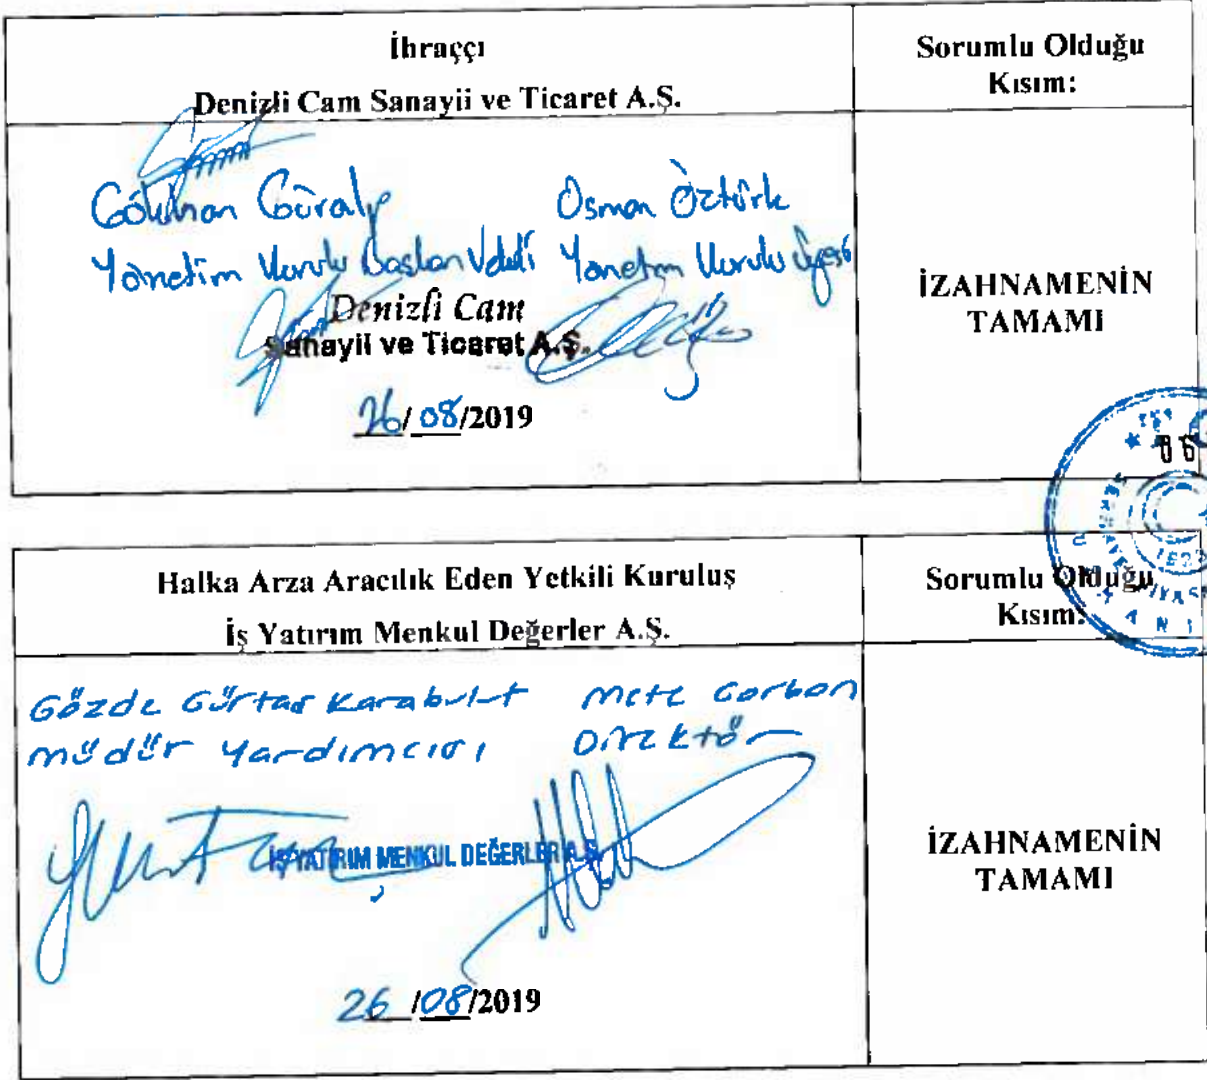 İhraççı
Denizli Cam Sanayii ve Ticaret A.Ş.
Sorumlu Olduğu
Kısım:
Gökhan Güralp
Yönetim Kurulu Başkan Vekili
Osman Öztürk
Yönetim Kurulu Üyesi
Denizli Cam
Sanayii ve Ticaret A.Ş.
26/08/2019
İZAHNAMENİN
TAMAMI
Halka Arza Aracılık Eden Yetkili Kuruluş
İş Yatırım Menkul Değerler A.Ş.
Sorumlu Olduğu
Kısım:
Gözde Gürtaş Karabulut
Müdür Yardımcısı
Mete Gorbon
Direktör
İŞ YATIRIM MENKUL DEĞERLER A.Ş.
26/08/2019
İZAHNAMENİN
TAMAMI